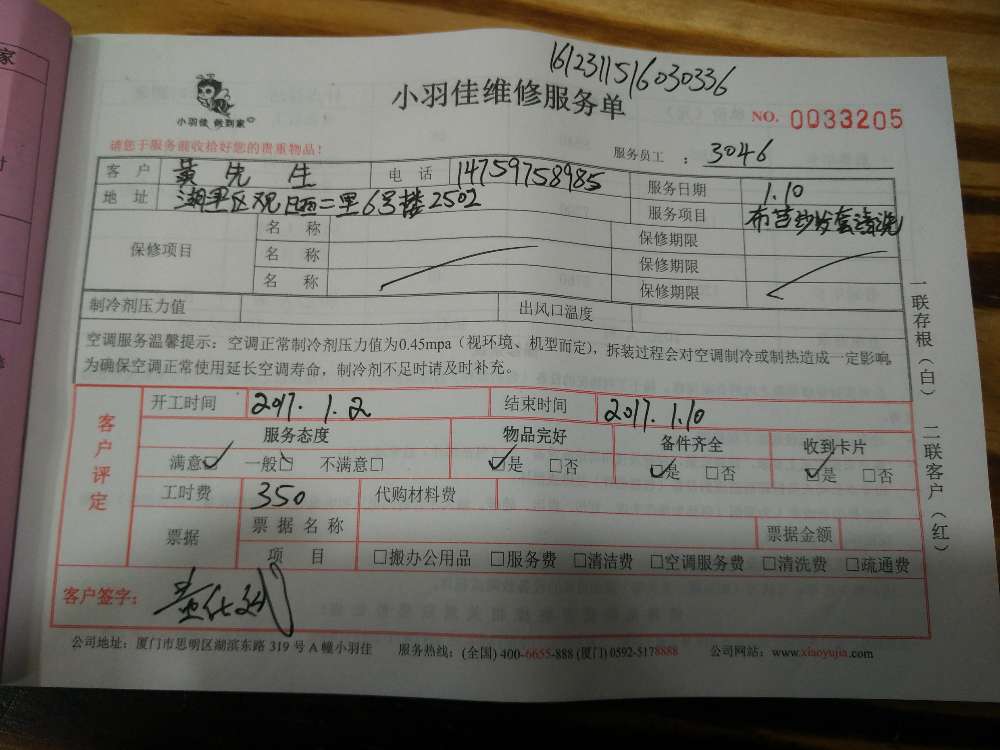 1612311516030336
小羽佳维修服务单
小羽佳 做到家
NO. 0033205
请您于服务前收拾好您的贵重物品！
服务员工：3046
客户 黄先生 电话 14759758985 服务日期 1.10
地址 湖里区观日西二里6号楼2502 服务项目 布艺沙发套清洗
保修项目 名称 保修期限
名称 保修期限
名称 保修期限
制冷剂压力值 出风口温度
空调服务温馨提示：空调正常制冷剂压力值为0.45mpa（视环境、机型而定），拆装过程会对空调制冷或制热造成一定影响，
为确保空调正常使用延长空调寿命，制冷剂不足时请及时补充。
一联存根（白） 二联客户（红）
客户评定
开工时间 2017.1.2 结束时间 2017.1.10
服务态度 物品完好 备件齐全 收到卡片
满意☑ 一般□ 不满意□ ☑是 □否 ☑是 □否 ☑是 □否
工时费 350 代购材料费
票据 票据名称 票据金额
项目 □搬办公用品 □服务费 □清洁费 □空调服务费 □清洗费 □疏通费
客户签字：
公司地址：厦门市思明区湖滨东路319号A幢小羽佳 服务热线：(全国) 400-6655-888 (厦门) 0592-5178888 公司网站：www.xiaoyujia.com